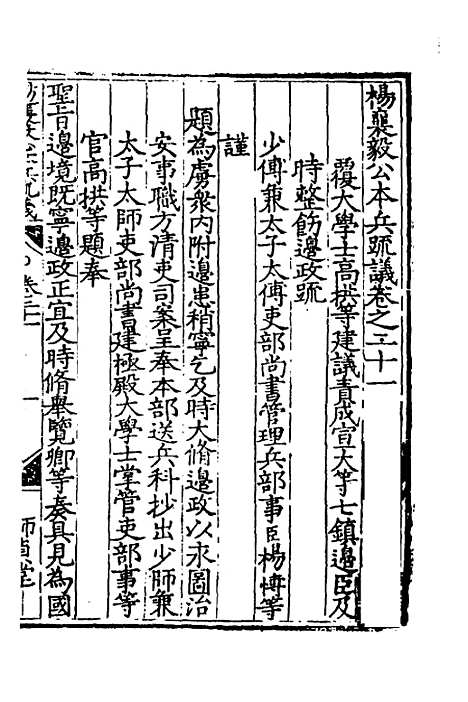 楊襄毅公本兵疏議卷之二十一
覆大學士高拱等建議責成宣大等七鎮邊臣及
時整飭邊政疏
少傅兼太子太傅吏部尚書管理兵部事臣楊博等
謹
題為虜衆內附邊患稍寧乞及時大脩邊政以永圖治
安事職方清吏司案呈奉本部送兵科抄出少師兼
太子太師吏部尚書建極殿大學士掌管吏部事等
官高拱等題奉
聖旨邊境既寧邊政正宜及時脩舉覽卿等奏具見為國
卷二十一
一
師貞堂